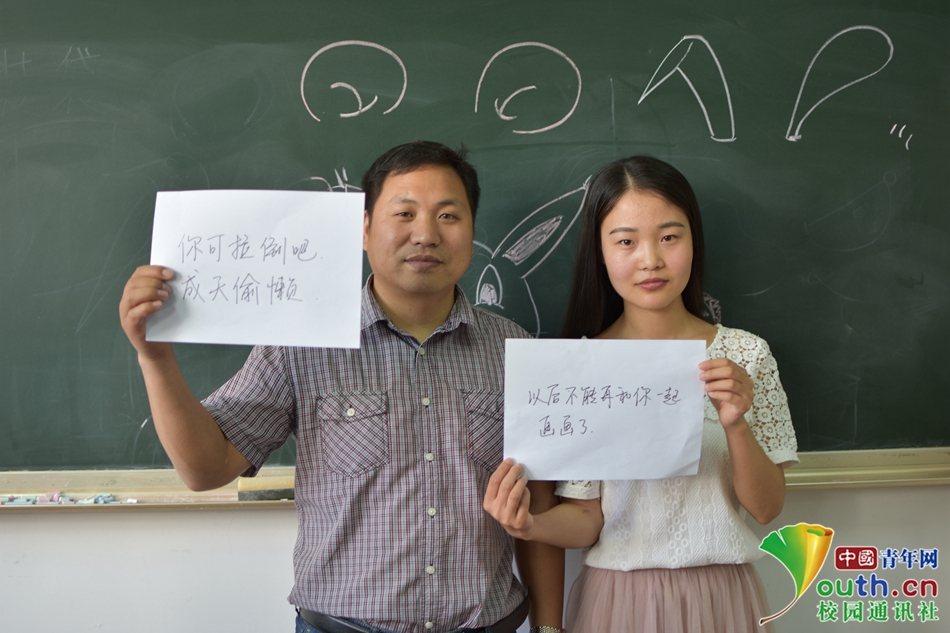 你可拉倒吧.
成天偷懒.
以后不能再和你一起
画画了.
中國青年网
Youth.cn
校园通讯社